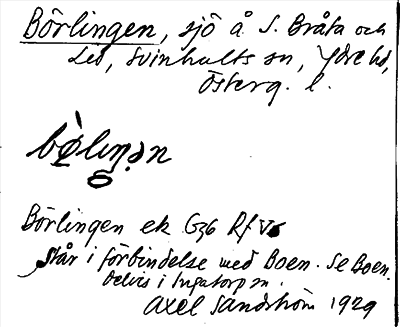 Börlingen, sjö å S. Bråta och
Led, Svinhults sn, Ydre hd,
Österg. l.
bø̀liŋən
Börlingen ek G36 Rf V
står i förbindelse med Boen. Se Boen.
Delvis i Ingatorp sn.
Axel Sandström 1929